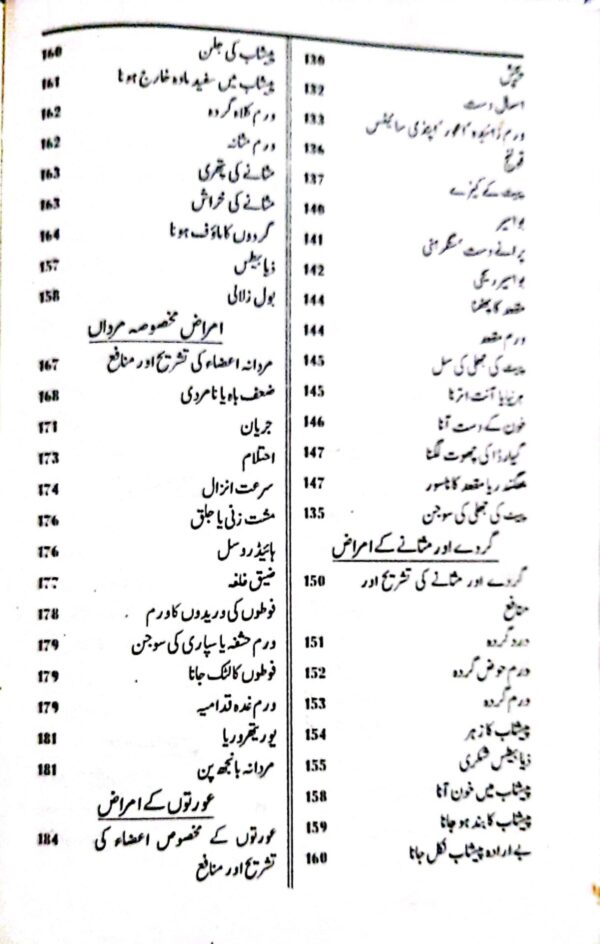 پیچش 130
اسہال دست 132
ورم زائیدہ اعور اپنڈی سائٹس 133
قولنج 136
پیٹ کے کیڑے 137
بواسیر 140
پرانے دست سنگرہنی 141
بواسیر ریحی 142
مقعد کا پھٹنا 144
ورم مقعد 144
پیٹ کی جھلی کی سل 145
ہرنیا یا آنت اترنا 145
خون کے دست آنا 146
گیارڈا کی چھوت لگنا 147
بھگندر یا مقعد کا ناسور 147
پیٹ کی جھلی کی سوجن 135
گردے اور مثانے کے امراض
گردے اور مثانے کی تشریح اور 150
منافع
درد گردہ 151
ورم حوض گردہ 152
ورم گردہ 153
پیشاب کا زہر 154
ذیابیطس شکری 155
پیشاب میں خون آنا 158
پیشاب کا بند ہو جانا 159
بے ارادہ پیشاب نکل جانا 160
پیشاب کی جلن 160
پیشاب میں سفید مادہ خارج ہونا 161
ورم کلاہ گردہ 162
ورم مثانہ 162
مثانے کی پتھری 163
مثانے کی خراش 163
گردوں کا ماؤف ہونا 164
ذیابیطس 157
بول زلالی 158
امراض مخصوصہ مرداں
مردانہ اعضاء کی تشریح اور منافع 167
ضعف باہ یا نامردی 168
جریان 171
احتلام 173
سرعت انزال 174
مشت زنی یا جلق 176
ہائیڈروسل 176
ضیق غلفہ 177
فوطوں کی وریدوں کا ورم 178
ورم حشفہ یا سپاری کی سوجن 179
فوطوں کا لٹک جانا 179
ورم غدہ قدامیہ 179
یوریتھروریا 181
مردانہ بانجھ پن 181
عورتوں کے امراض
عورتوں کے مخصوص اعضاء کی 184
تشریح اور منافع